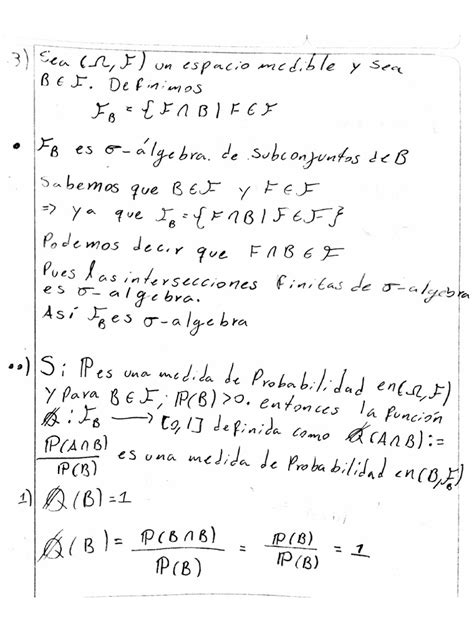 3) Sea (Ω, F) un espacio medible y sea
B ∈ F. Definimos
F_B = { F ∩ B | F ∈ F
• F_B es σ-álgebra de subconjuntos de B
Sabemos que B ∈ F y F ∈ F
⇒ ya que F_B = { F ∩ B | F ∈ F }
Podemos decir que F ∩ B ∈ F
Pues las intersecciones finitas de σ-algebra
es σ-algebra.
Así F_B es σ-algebra
••) Si ℙ es una medida de Probabilidad en (Ω, F)
y para B ∈ F; ℙ(B) > 0. entonces la función
Q : F_B → [0,1] definida como Q(A∩B) :=
ℙ(A∩B) / ℙ(B) es una medida de Probabilidad en (B, F_B)
1) Q(B) = 1
Q(B) = ℙ(B∩B) / ℙ(B) = ℙ(B) / ℙ(B) = 1